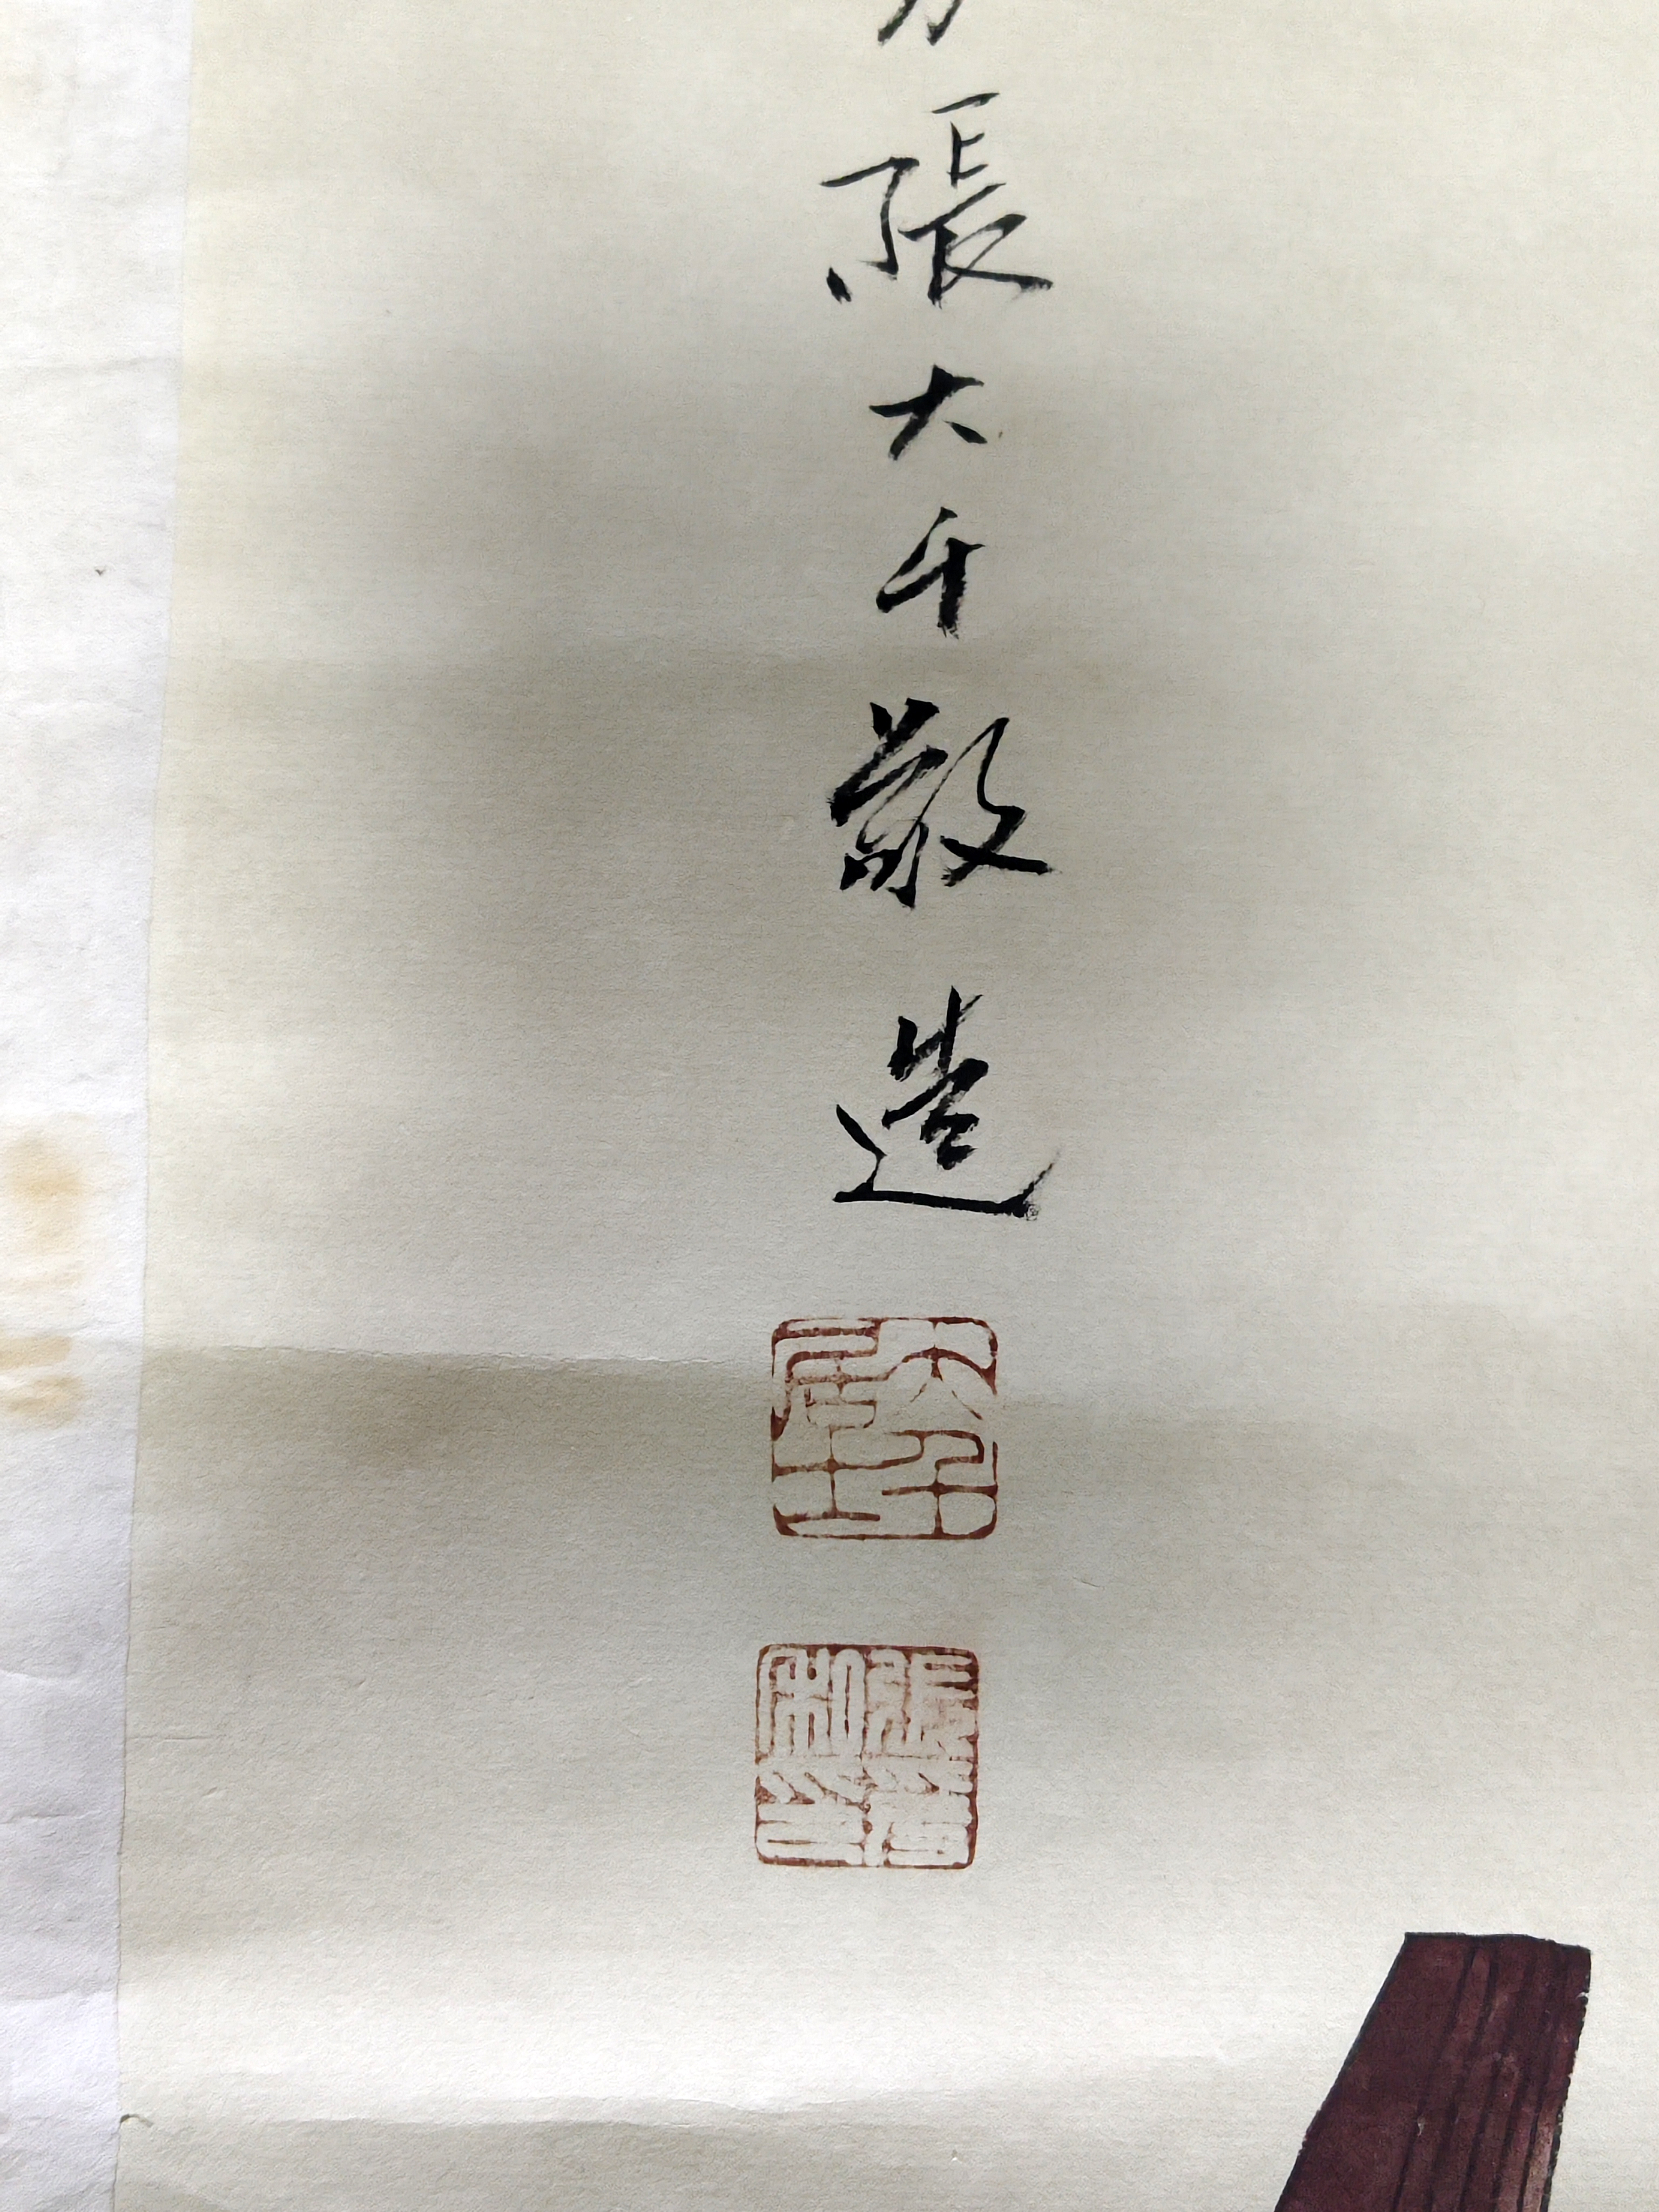 張大千敬造
大千居士
張爰私印